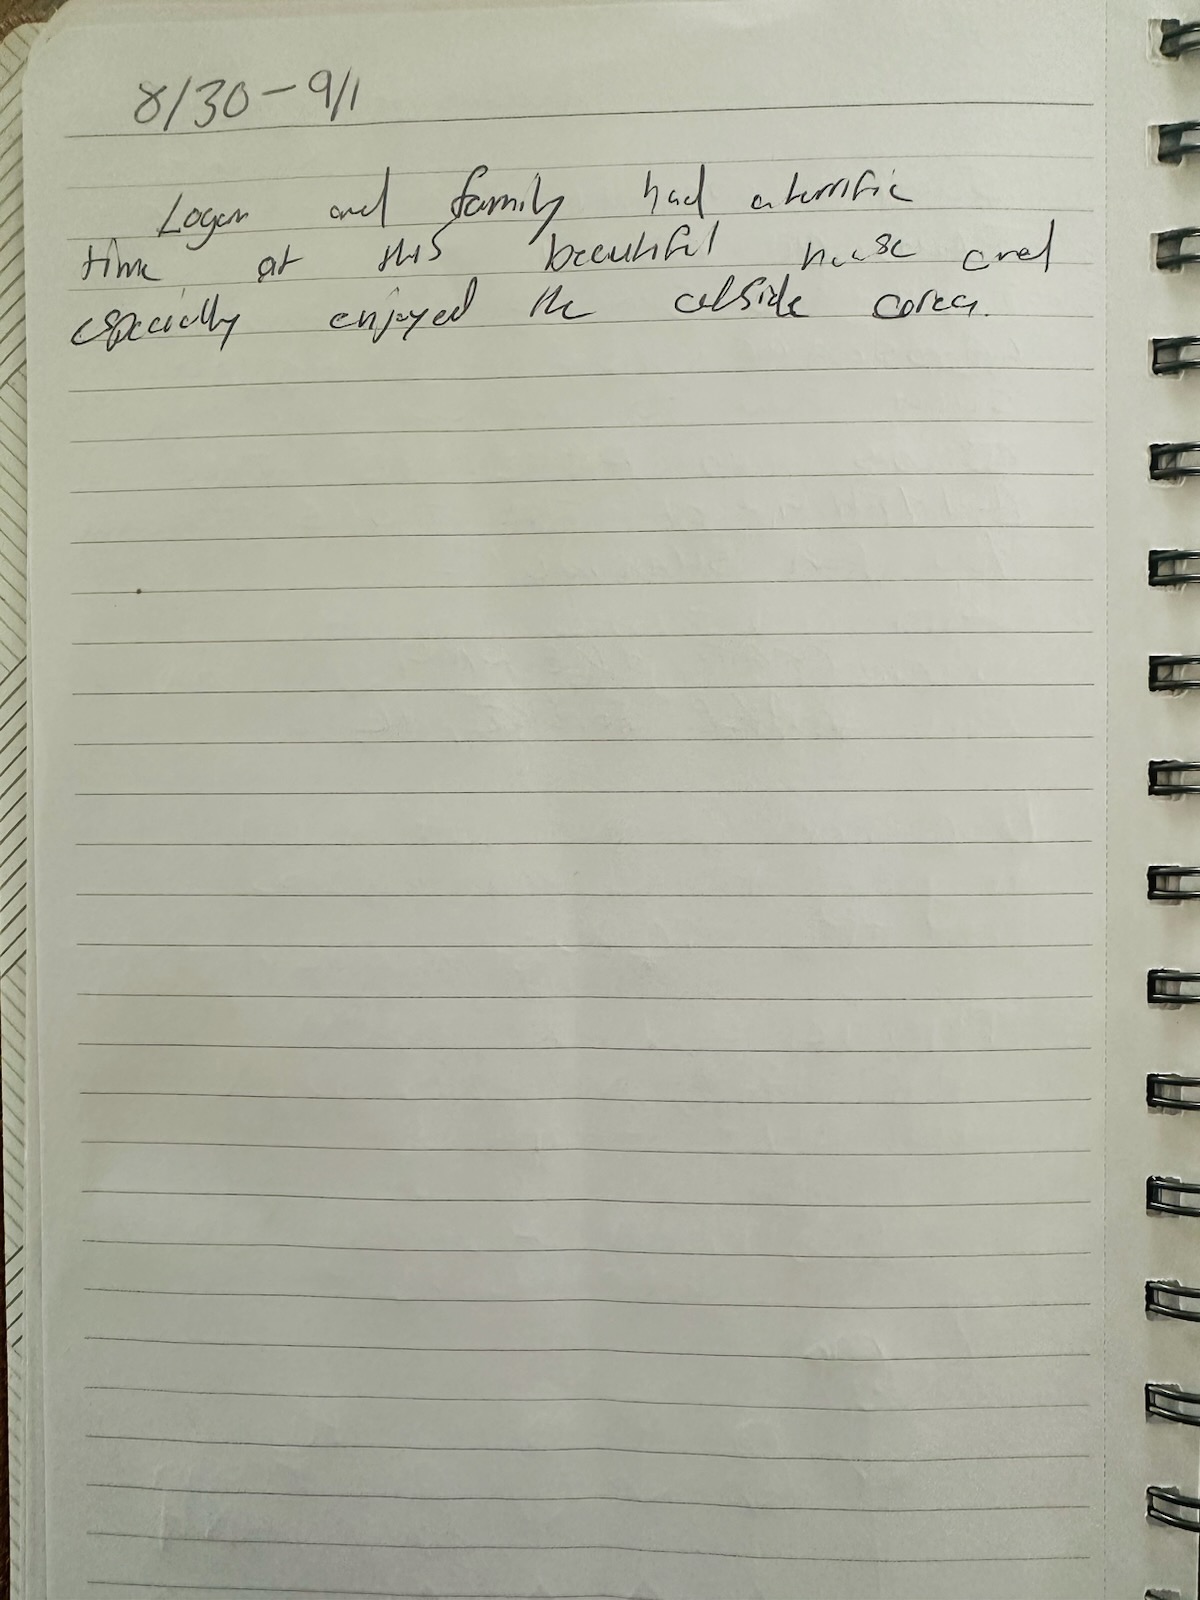 8/30-9/1
Logan and family had a terrific
time at this beautiful house and
especially enjoyed the outside area.